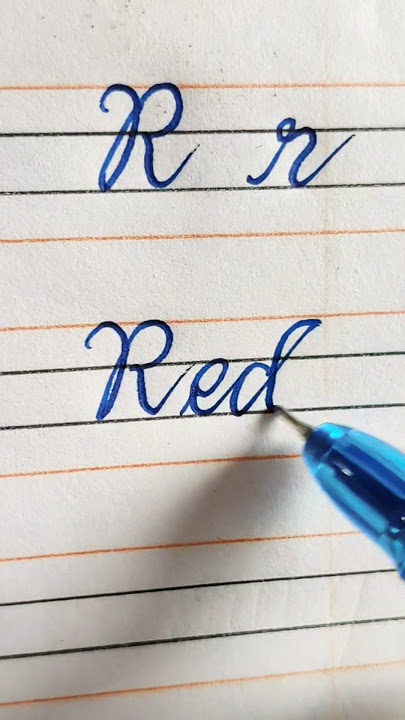 R r
Red